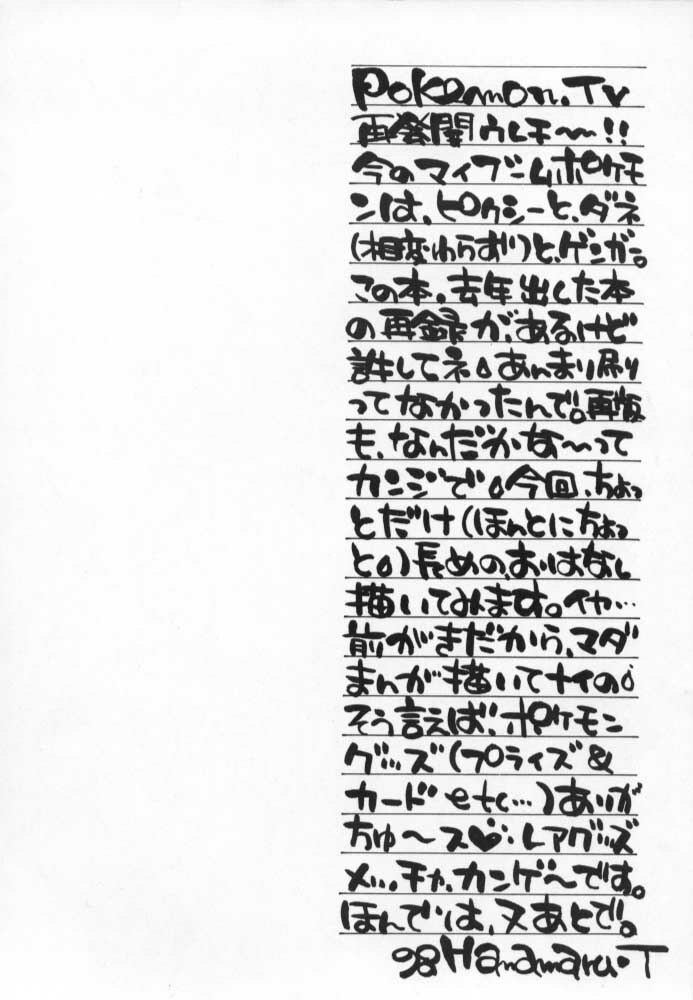 Pokemon.Tv
再発開ウレチ〜〜!!
今のマイブームポケモ
ンは、ピクシーと、ダネ
(相変わらず)と、ゲンガー。
この本、去年出した本
の再録が、あるけど
許してネ。あんまり刷り
ってなかったんで。再版
も、なんだかな〜って
カンジで。今回、ちょっ
とだけ(ほんとにちょっ
と。)長めの、おはなし
描いてみます。イヤ…
前がきだから、マダ
まんが描いてナイの。
そう言えば、ポケモン
グッズ(プライズ&
カード etc…)ありが
ちゅ〜ス♥:レアグッズ
メッチャ、カンゲ〜です。
ほんでは、又あとで。
'98 Hanamaru・T